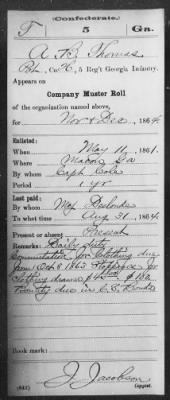 (Confederate.)
T 5 Ga.
A. B. Thomas
Co. , 5 Reg't Georgia Infantry.
Appears on
Company Muster Roll
of the organization named above,
for Nov & Dec, 1864.
Enlisted:
When May 11, 1861.
Where Macon Ga
By whom Capt Cole
Period 1 yr
Last paid:
By whom Maj
To what time Aug 31, 1864.
Present or absent Present
Remarks: Daily duty
Commutation for Clothing due
from Oct 8 1863 for
Clothing drawn $
Bounty due in C.S. Bonds
Book mark:
J. Jacobson
(642) Copyist.